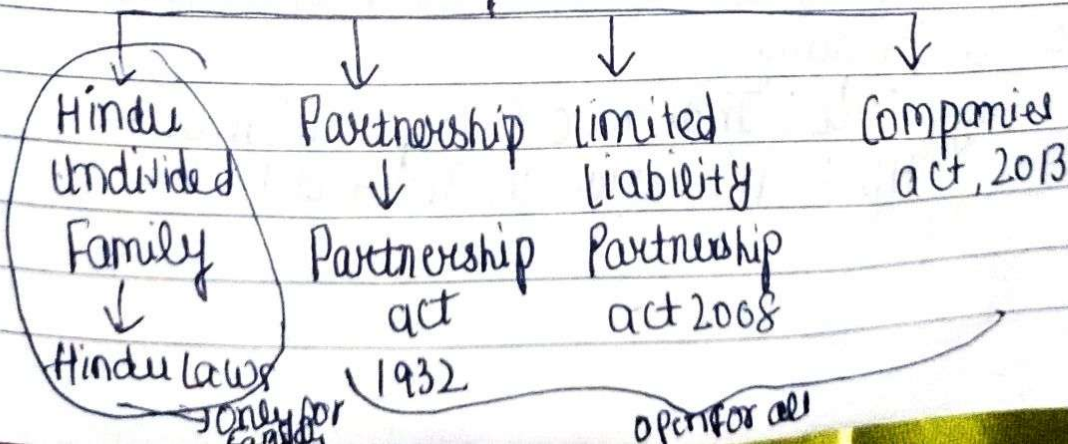 Hindu
Undivided
Family
↓
Hindu Laws
only for
Partnership
↓
Partnership
act
1932
Limited
Liability
Partnership
act 2008
Companies
act, 2013
open for all